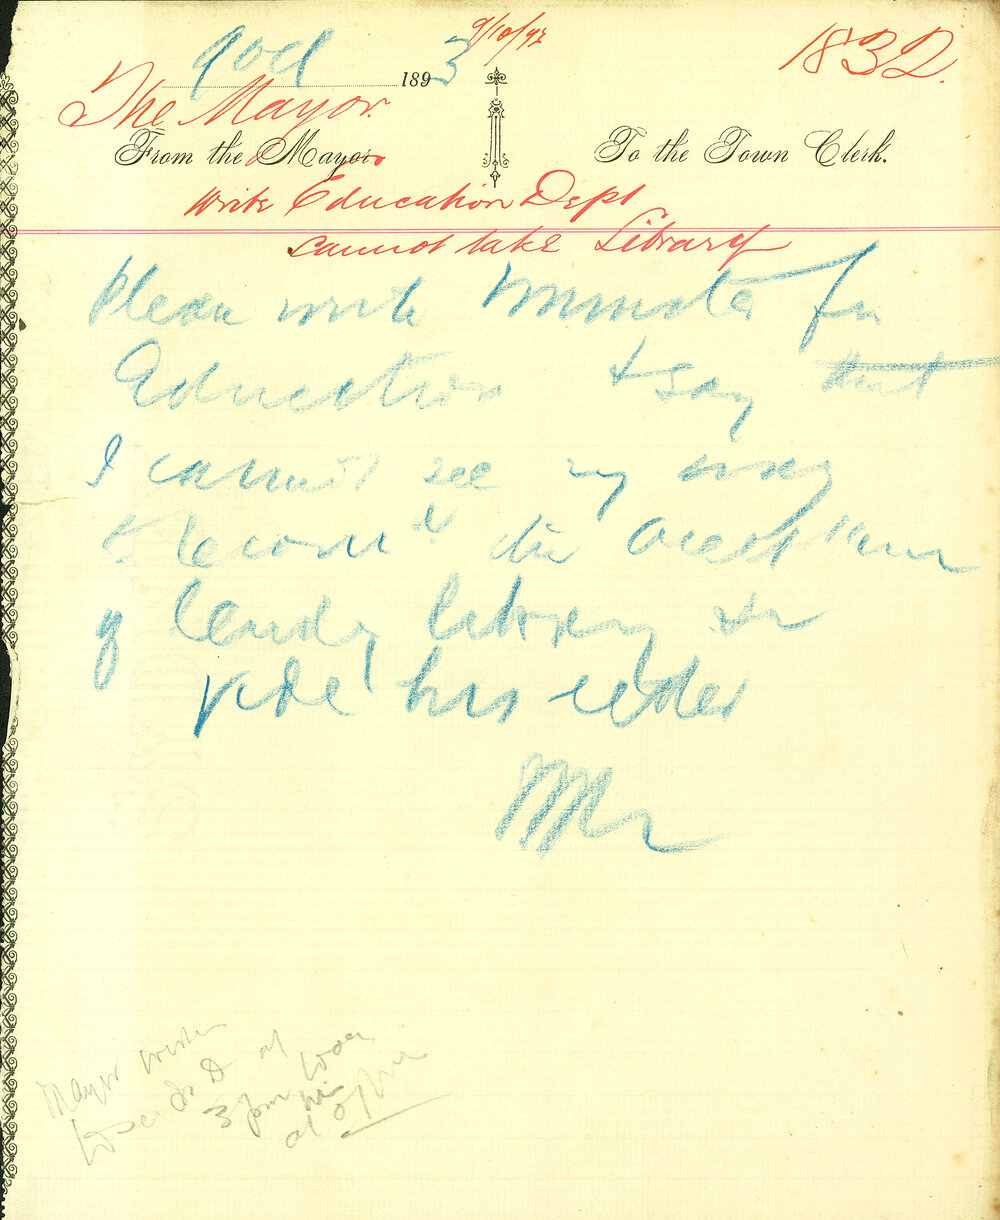 9/10/93
1832.
9 Oct 1893
The Mayor.
From the Mayor To the Town Clerk.
Write Education Dept
cannot take Library
Please write Minister for
Education & say that
I cannot see my way
to recomd the acceptance
of Lending Library
vide his letter
Mayor wishes
to see
3 pm
at